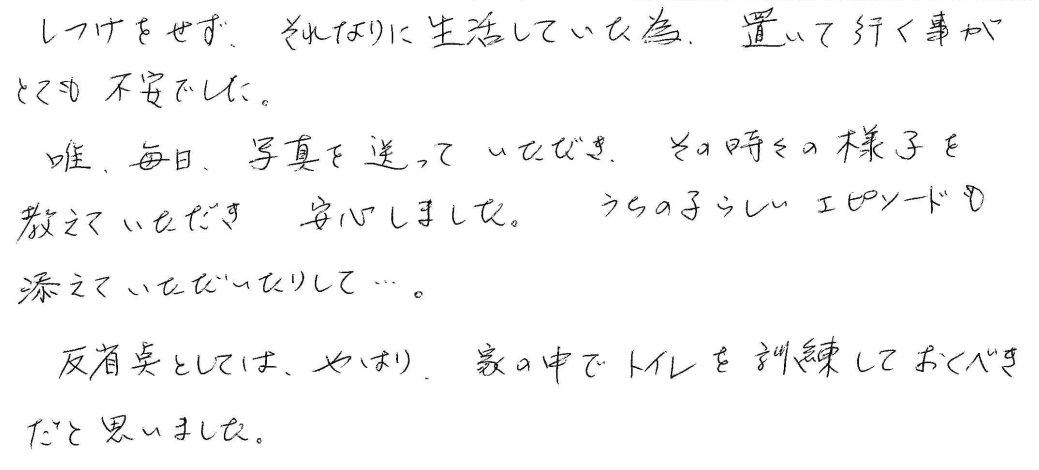 しつけをせず、それなりに生活していた為、置いて行く事が
とても不安でした。
唯、毎日、写真を送っていただき、その時々の様子を
教えていただき 安心しました。 うちの子らしいエピソードも
添えていただいたりして…。
反省点としては、やはり、家の中でトイレを訓練しておくべき
だと思いました。